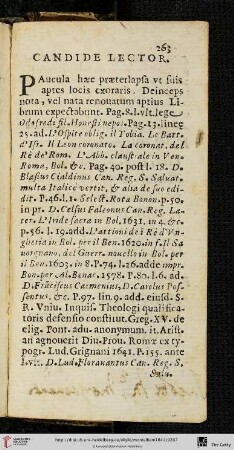 263
CANDIDE LECTOR.
PAucula hæc præterlapsa vt suis
aptes locis exoraris. Deinceps
nota, vel nata renouatum aptius Li-
brum expectabunt. Pag.8.l.vlt.lege
Odofredi fil. Honesti nepos. Pag.13. linee
25. ad. L'Ospite oblig. il Tobia. Le Batt.
d'Isr. Il Leon coronato. La coronat. del
Rè de' Rom. L'Abb. claust. ale in Ven.
Roma, Bol. &c. Pag. 40. post l. 18. D.
Blasius Cialdinus Can. Reg. S. Saluat.
multa Italicè vertit, & alia de suo edi-
dit. P.46.l.1. Select. Rota Bonon. p.50.
in pr. D. Celsus Falconus Can. Reg. La-
ter. L'Iride sacra in Bol. 1631. in 4. & c.
p.56. l. 19. add. L'attioni de i Rè d'Vn-
gheria in Bol. per il Ben. 1620. in f. Il Sa-
uorgnano, del Guerr. nouello in Bol. per
il Ben. 1603. in 8. P.74. l.26. adde impr.
Bon. per Al. Benac. 1578. P.80. l.6. ad.
D. Fräciscus Carmenius, D. Carolus Pos-
sentus, &c. P.97. lin.9. add. eiusd. S.
R. Vniu. Inquis. Theologi qualifica-
toris defensio constitut. Greg. XV. de
elig. Pont. adu. anonymum. it. Arist.
an agnouerit Diu. Prou. Romæ ex ty-
pogr. Lud. Grignani 1641. P.155. ante
D. Lud. Florauantus Can. Reg. S.
Salu.